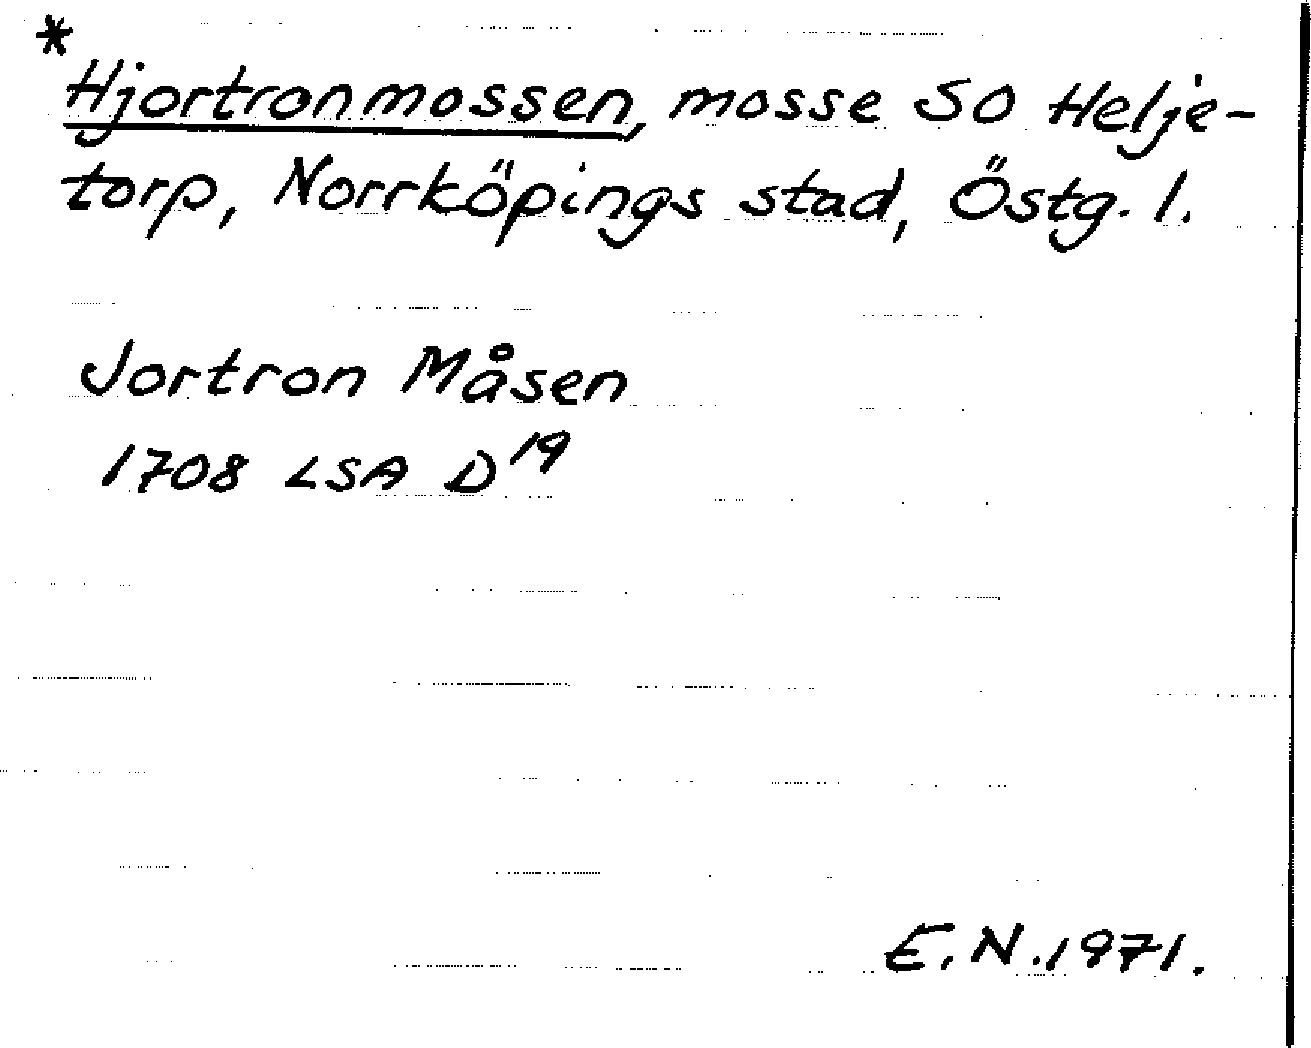 *
Hjortronmossen, mosse SO Helje-
torp, Norrköpings stad, Östg. l.
Jortron Måsen
1708 LSA D19
E.N.1971.